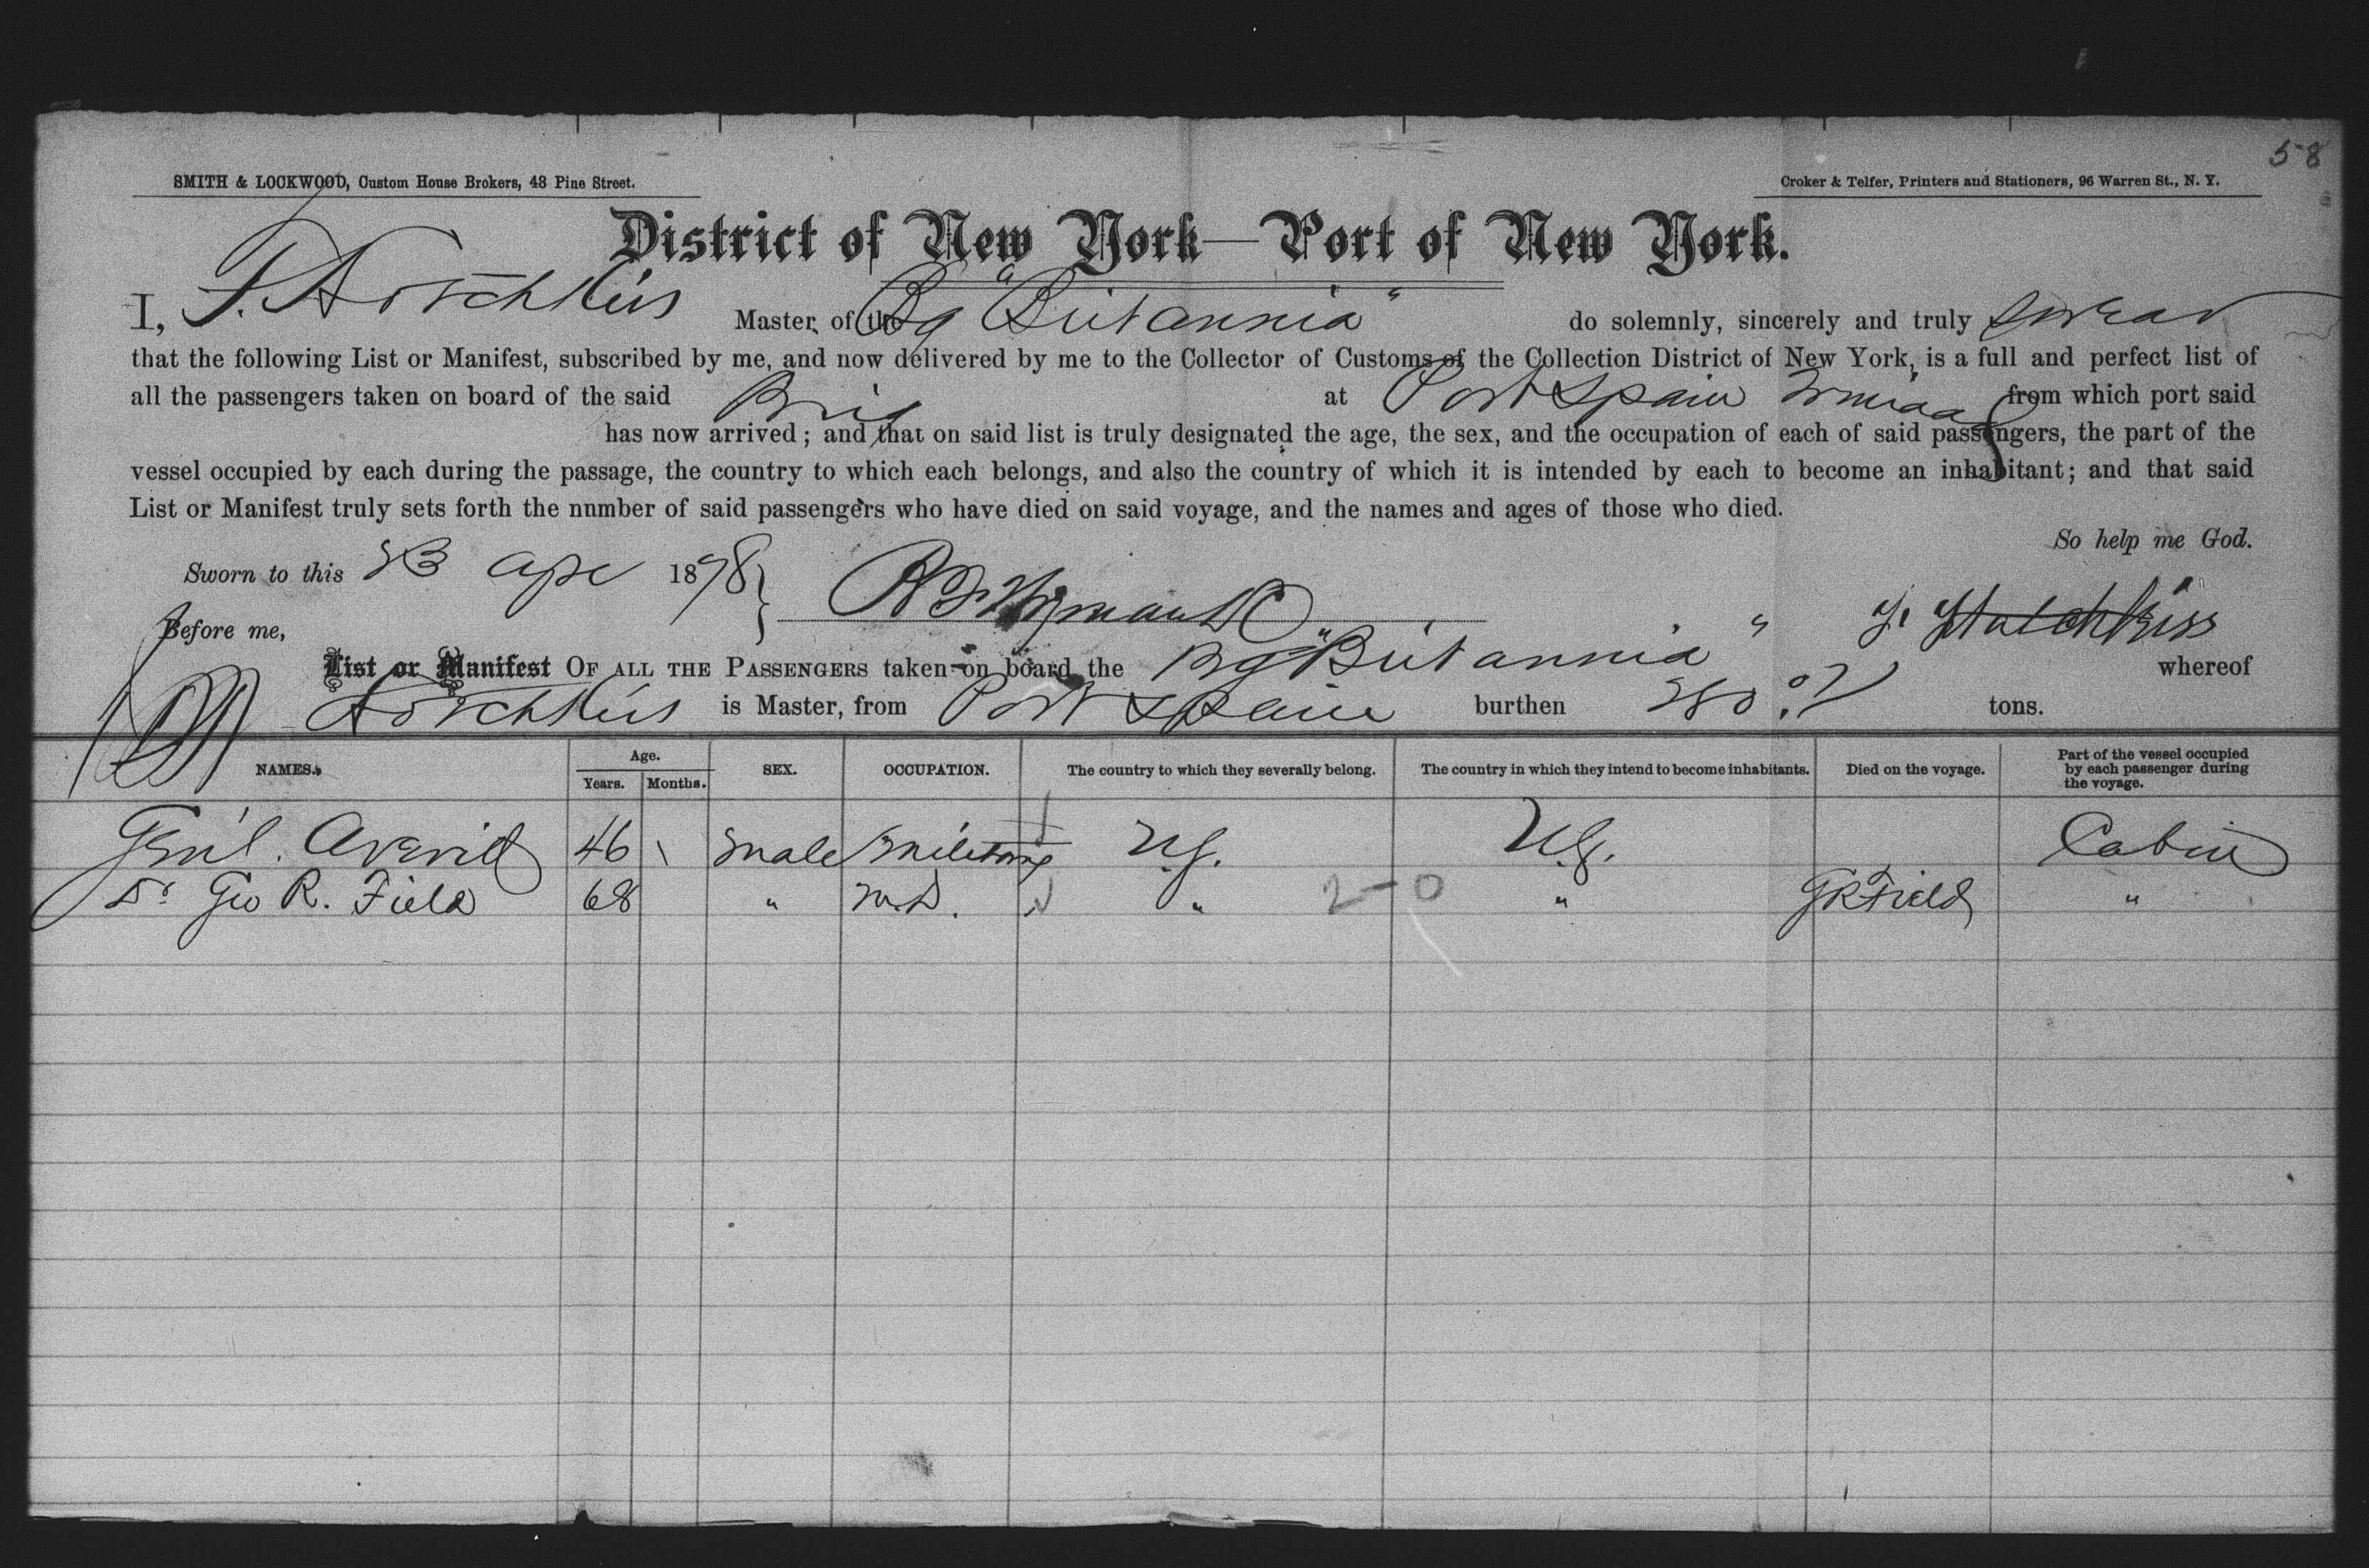 58
SMITH & LOCKWOOD, Custom House Brokers, 48 Pine Street.
Croker & Telfer, Printers and Stationers, 96 Warren St., N. Y.
District of New York—Port of New York.
I, F. Hotchkiss Master of the Bg "Britannia" do solemnly, sincerely and truly swear
that the following List or Manifest, subscribed by me, and now delivered by me to the Collector of Customs of the Collection District of New York, is a full and perfect list of
all the passengers taken on board of the said Brig at Port Spain Trinidad from which port said
has now arrived; and that on said list is truly designated the age, the sex, and the occupation of each of said passengers, the part of the
vessel occupied by each during the passage, the country to which each belongs, and also the country of which it is intended by each to become an inhabitant; and that said
List or Manifest truly sets forth the nnmber of said passengers who have died on said voyage, and the names and ages of those who died.
So help me God.
Sworn to this 23 Apr 1878
F. Hutchkiss
Before me,
List or Manifest OF ALL THE PASSENGERS taken on board the Bg "Britannia" whereof
Hotchkiss is Master, from Port Spain burthen 280 tons.
NAMES. Age. Years. Months. SEX. OCCUPATION. The country to which they severally belong. The country in which they intend to become inhabitants. Died on the voyage. Part of the vessel occupied by each passenger during the voyage.
Genl. Averill 46 male Military U.S. U.S. Cabin
Dr Geo R. Field 68 " M.D. " 2-0 " GRField "